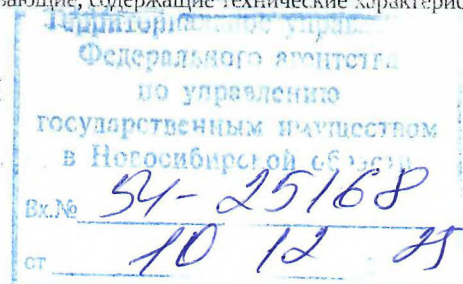 вающие, содержащие технические характерис
Территориальное управ
Федерального агентства
по управлению
государственным имуществом
в Новосибирской области
Вх.№ 54-25168
от 10 12 25